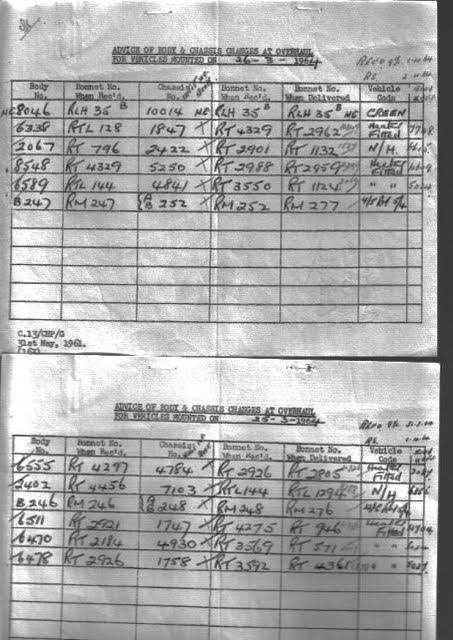 ADVICE OF BODY & CHASSIS CHANGES AT OVERHAUL
FOR VEHICLES MOUNTED ON 26-3-1964
Body No. Bonnet No. When Rec'd. Chassis No. Bonnet No. When Rec'd. Bonnet No. When Delivered Vehicle Code
8046 RLH 35 B 10014 NS RLH 35 B RLH 35 B NS GREEN
6238 RTL 128 1847 X RT 4329 RT 2962 Heater Fitted
2067 RT 796 2422 X RT 2901 RT 1132 N/H.
8548 RT 4329 5250 X RT 2988 RT 2959 Heater Fitted
6589 RTL 144 4841 X RT 3550 RT 1124 " "
B247 RM 247 A B 252 X RM 252 RM 277
C.13/CHP/G
31st May, 1961.
ADVICE OF BODY & CHASSIS CHANGES AT OVERHAUL
FOR VEHICLES MOUNTED ON 25-3-1964
Body No. Bonnet No. When Rec'd. Chassis No. Bonnet No. When Rec'd. Bonnet No. When Delivered Vehicle Code
6555 RT 4297 4784 X RT 2926 RT 2805 Heater Fitted
2402 RT 4456 7103 X RTL 144 RTL 1294 N/H
B246 RM 246 A B 248 X RM 248 RM 276
6511 RT 2921 1747 X RT 4275 RT 946 Heater Fitted
6470 RT 2184 4930 X RT 3569 RT 571 " "
6478 RT 2926 1758 X RT 3592 RT 436 " "